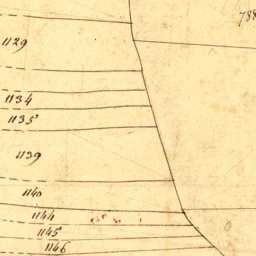 788
1129
1134
1135
1139
1140
1144
1145
1146